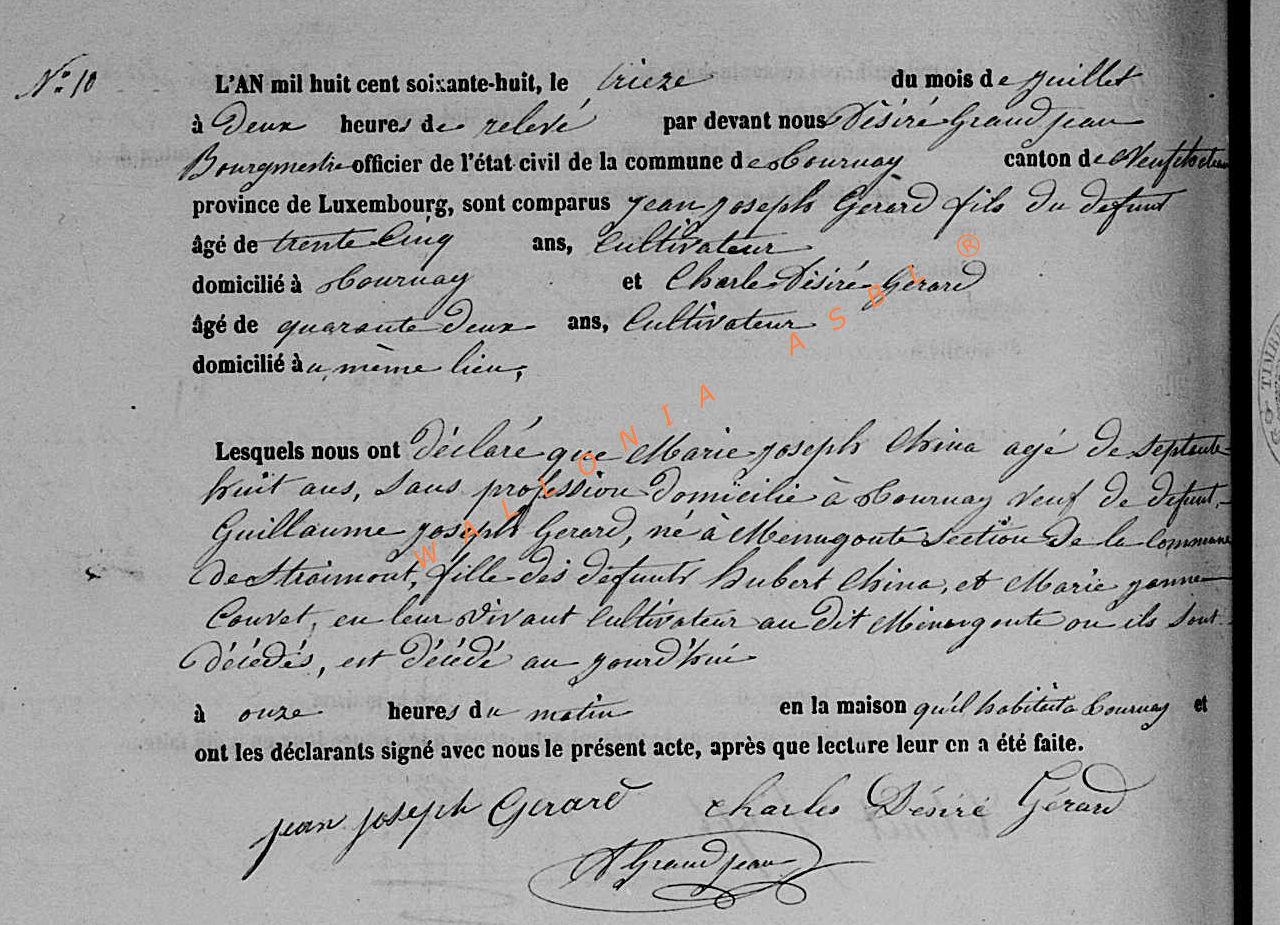 N° 10
L'AN mil huit cent soixante-huit, le trieze du mois de juillet
à Deux heures de relevé par devant nous Désiré Grandjean
Bourgmestre officier de l'état civil de la commune de Tournay canton de Neufchateau
province de Luxembourg, sont comparus jean joseph Gerard fils du defunt
âgé de trente Cinq ans, Cultivateur
domicilié à Tournay et Charle Désiré Gerard
âgé de quarante deux ans, Cultivateur
domicilié àu même lieu,
Lesquels nous ont Déclaré que Marie joseph China agé de septente
huit ans, Sans profession Domicilié à Tournay veuf de defunt
Guillaume joseph Gerard, né à Menugoute Section de la Commune
de Straimont, fille des défunts hubert China, et Marie janne
Couvet, en leur vivant Cultivateur au dit Menugoute ou ils sont
Décédés, est Décédé au jourd'hui
à onze heures du matin en la maison qu'il habitait a Tournay et
ont les déclarants signé avec nous le présent acte, après que lecture leur en a été faite.
jean joseph Gerard Charles Désiré Gérard
D Grandjean
WALLONIA ASBL ®
TIMBR